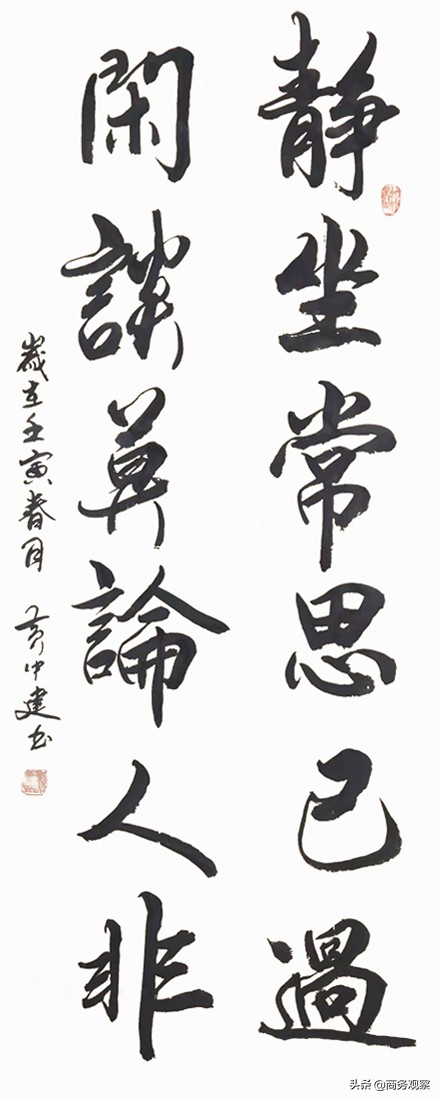 靜坐常思己過
閑談莫論人非
歲在壬寅春月 黄中建书
头条 @商务观察